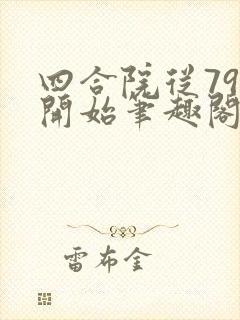 四合院从79
開始笔趣閣
雷布金